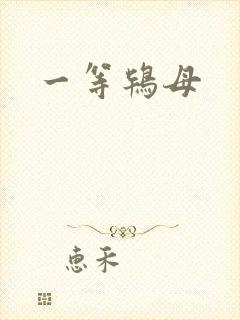 一等鸨母
惠禾